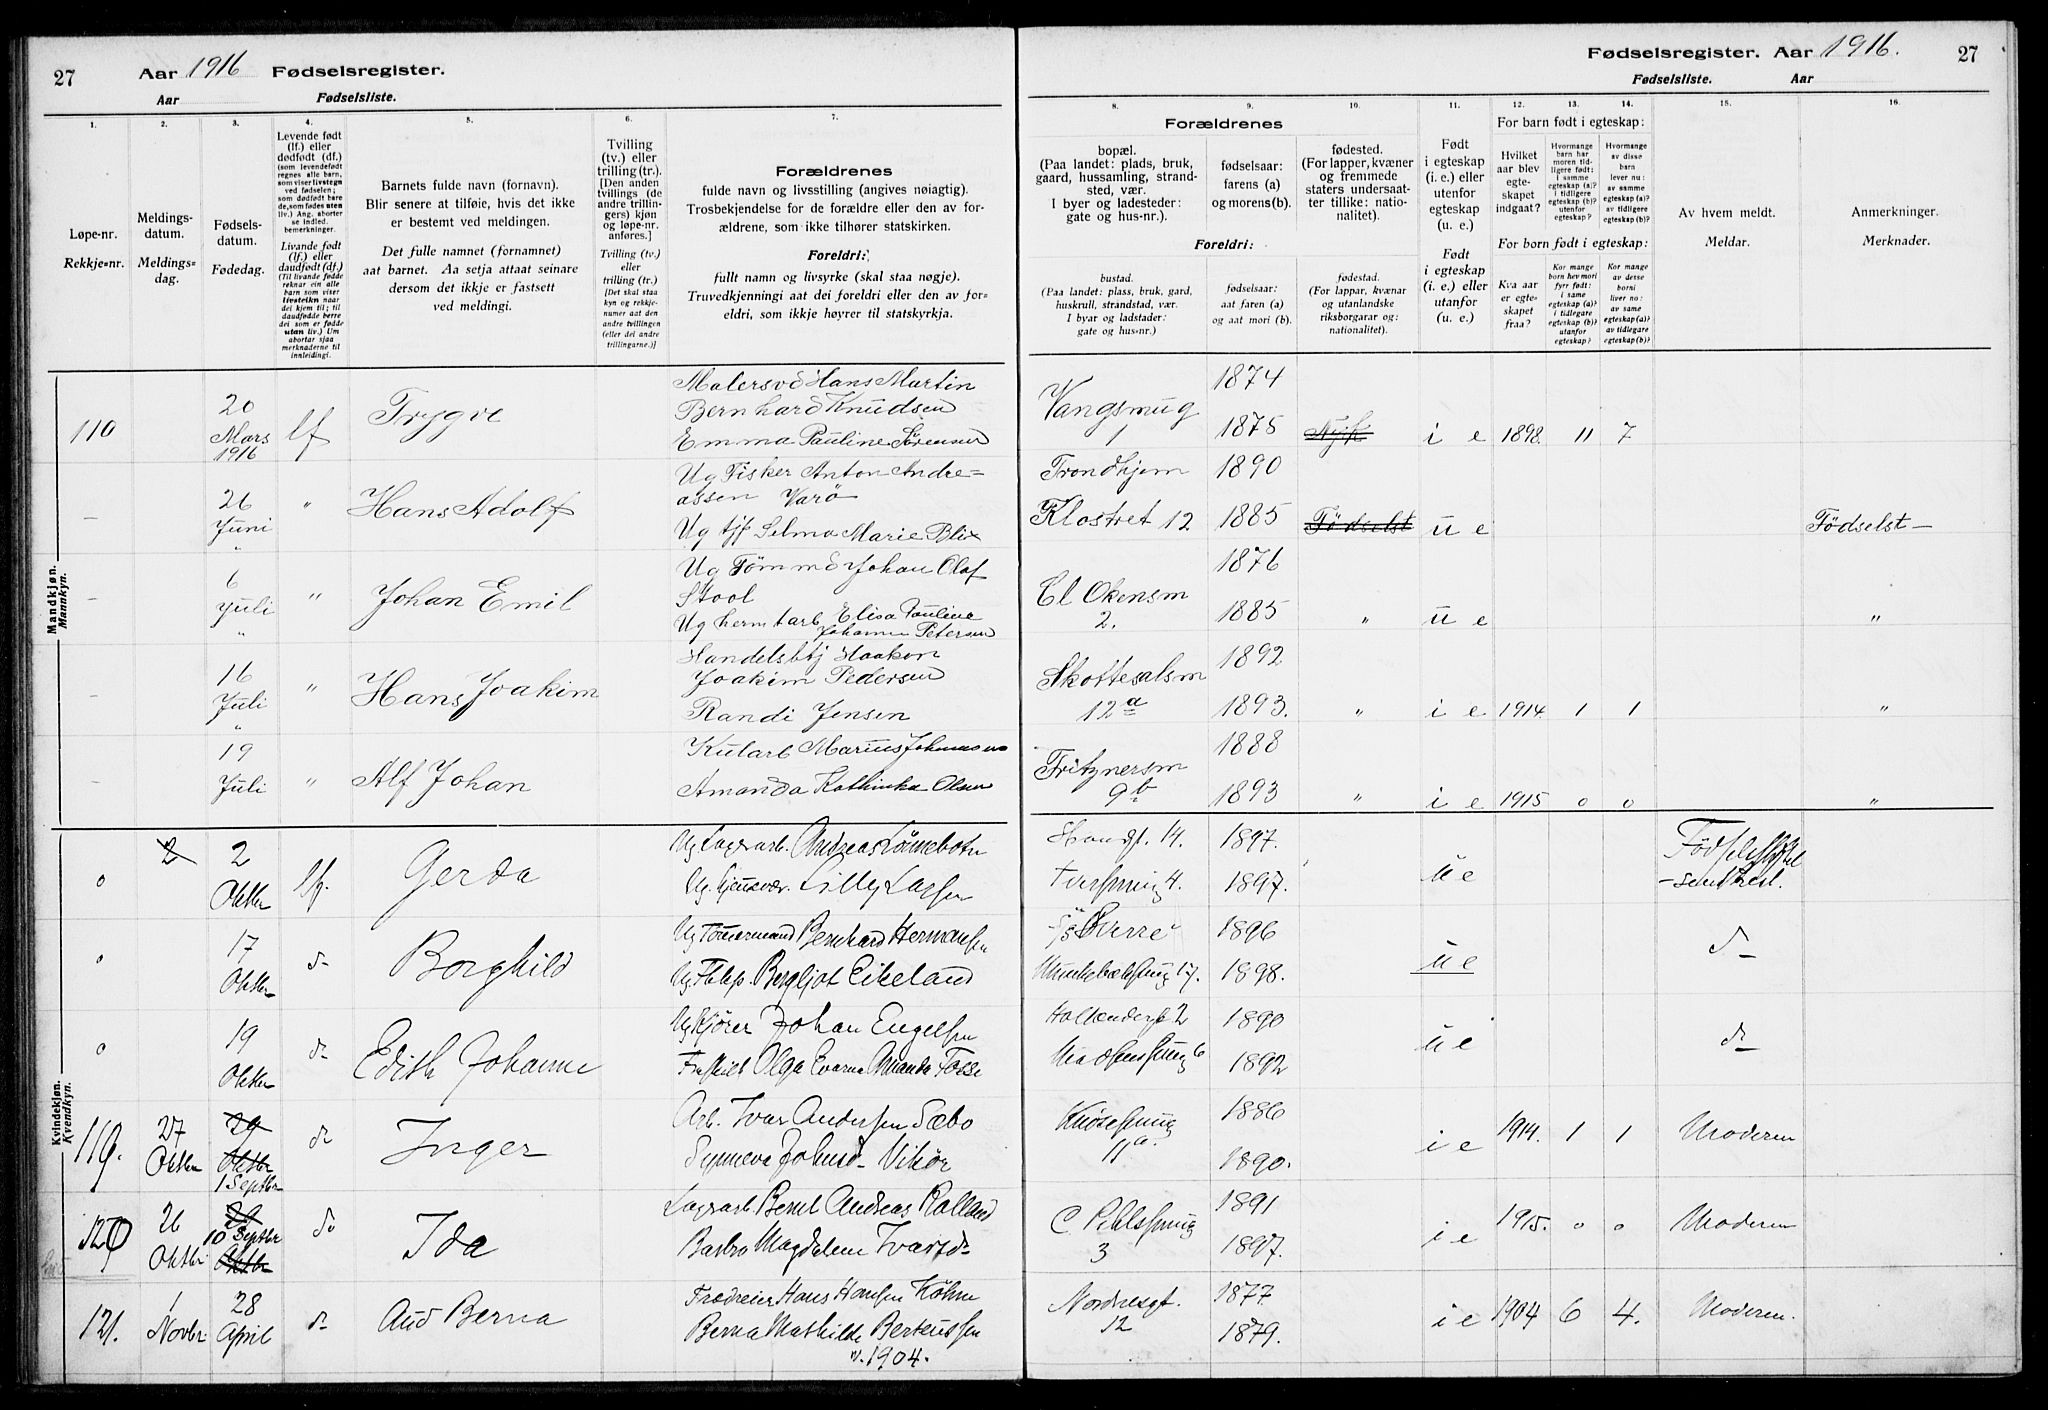 27 Aar 1916 Fødselsregister.
Aar Fødselsliste.
Fødselsregister. Aar 1916. 27
Fødselsliste. Aar
1. 2. 3. 4. 5. 6. 7.
Løpe-nr.
Rekkje=nr.
Meldings-
datum.
Meldings=
dag.
Fødsels-
datum.
Fødedag.
Levende født
(lf.) eller
dødfødt (df.)
(som levendefødt
regnes alle barn,
som viser livstegn
ved fødselen;
som dødfødt bare
de, som fødes uten
liv.) Ang. aborter
se indled.
bemerkninger.
Livande født
(lf.) eller
daudfødt (df.)
(Til livande fødde
reknar ein alle
barn som viser
livsteikn naar
dei kjem til; til
daudfødde berre
dei som er fødde
utan liv.) Um
abortar sjaa
merknaderne til
innleidingi.
Barnets fulde navn (fornavn).
Blir senere at tilføie, hvis det ikke
er bestemt ved meldingen.
Det fulle namnet (fornamnet)
aat barnet. Aa setja attaat seinare
dersom det ikkje er fastsett
ved meldingi.
Tvilling
(tv.) eller
trilling (tr.).
[Den anden
tvillings (de
andre trillin-
gers) kjøn
og løpe-nr.
anføres.]
Tvilling (tv.)
eller
trilling (tr.)
[Det skal staa
kyn og rekkje-
numer aat den
andre tvillingen
(eller dei andre
trillingarne.)]
Forældrenes
fulde navn og livsstilling (angives nøiagtig).
Trosbekjendelse for de forældre eller den av for-
ældrene, som ikke tilhører statskirken.
Foreldri:
fullt namn og livsyrke (skal staa nøgje).
Truvedkjenningi aat dei foreldri eller den av for=
eldri, som ikkje høyrer til statskyrkja.
8. 9. 10. 11. 12. 13. 14. 15. 16.
Forældrenes
bopæl.
(Paa landet: plads, bruk,
gaard, hussamling, strand-
sted, vær.
I byer og ladesteder:
gate og hus-nr.).
fødselsaar:
farens (a)
og morens (b).
fødested.
(For lapper, kvæner
og fremmede
staters undersaat-
ter tillike: natio-
nalitet).
Foreldri:
bustad.
(Paa landet: plass, bruk, gard,
huskrull, strandstad, vær.
I byar og ladstader:
gate og hus=nr.)
fødselsaar:
aat faren (a)
og aat mori (b).
fødestad.
(For lappar, kvænar
og utanlandske
riksborgarar og:
nationalitet).
Født
i egteskap
(i. e.) eller
utenfor
egteskap
(u. e.)
Født
i egteskap
(i. e.) eller
utanfor
egteskap
(u. e.)
For barn født i egteskap:
Hvilket
aar blev
egte-
skapet
indgaat?
Hvormange
barn har
moren tid-
ligere født:
i samme
egteskap (a)?
i tidligere
egteskap (b)?
utenfor
egteskap?
Hvormange
av disse
barn
lever nu:
av samme
egteskap (a)?
av tidligere
egteskap (b)?
For born født i egteskap:
Kva aar
er egte-
skapet
fraa?
Kor mange
born hev mori
fyrr født:
i same
egteskap (a)?
i tidlegare
egteskap (b)?
utanfor
egteskap?
Kor mange
av desse
borni
liver no:
av same
egteskap (a)?
av tidlegare
egteskap (b)?
Av hvem meldt.
Meldar.
Anmerkninger.
Merknader.
Mandkjøn.
Mannkyn.
110 20 Mars 1916 lf Trygve
Malersvd Hans Martin
Bernhard Knudsen
Emma Pauline Sørensen
Vangsmug 1 1874 1875 i e 1898. 11 7
– 26 Juni " " Hans Adolf
Ug Fisker Anton Andre=
assen Varö
Ug tjf Selma Marie Blix
Trondhjem 1890
Klostret 12 1885 Födselst u e Födselst –
– 6 Juli " " Johan Emil
Ug Tömmd Johan Olaf
Stool
Ug hermtarb Elisa Pauline
Johanne Petersen
Cl Okensm 2. 1876 1885 " u e "
– 16 Juli " " Hans Joakim
Handelsbtj Haakon
Joakim Pedersen
Randi Jensen
Skottesalsm 12a 1892 1893. " i e 1914. 1 1 "
– 19 Juli " Alf Johan
Kularb Marius Johannesen
Amanda Kathinka Olsen
Fritznersm 9b 1888 1893 " i e 1915 0 0 "
Kvindekjøn.
Kvendkyn.
0 2 2 Oktbr lf. Gerda
Ug Lagerarb. Andreas Lönnebotn
Ug. tjenstvær. Lilly Larsen
Strandgt. 14. 1897. 1897. u e
0 17 Oktbr do Borghild
Ug Tömmermand Bernhard Hermansen
Ug. Bergljot Eikeland
17. 1896 1898. u e do
0 19 Oktbr do Edith Johanne
Ug Kjører Johan Engelsen
Olga Evarna Amanda Tosse
2 1890
Madsensmug 6 1892 u e do
119. 27 Oktbr 29 Oktbr 1 Septbr do Inger
Arb. Ivar Andersen Sæbo
Synneva Johnsd. Vikör
Knösesmug 11a. 1886 1890. i e 1914. 1 1 Moderen
120 26 Oktbr 10 Septbr Oktbr do Ida
Lagerarb. Bernt Andreas Rolland
Barbro Magdalene Ivarsd.
C Pihlssmug 3 1891 1897. i e 1915. 0 0 Moderen
121. 1 Novbr 28 April do Aud Berna
Trædreier Hans Hansen Köhne
Berna Mathilde Berteussen
v. 1904.
Nordnesgt. 12 1877. 1879. i e 1904 6 4. Moderen.